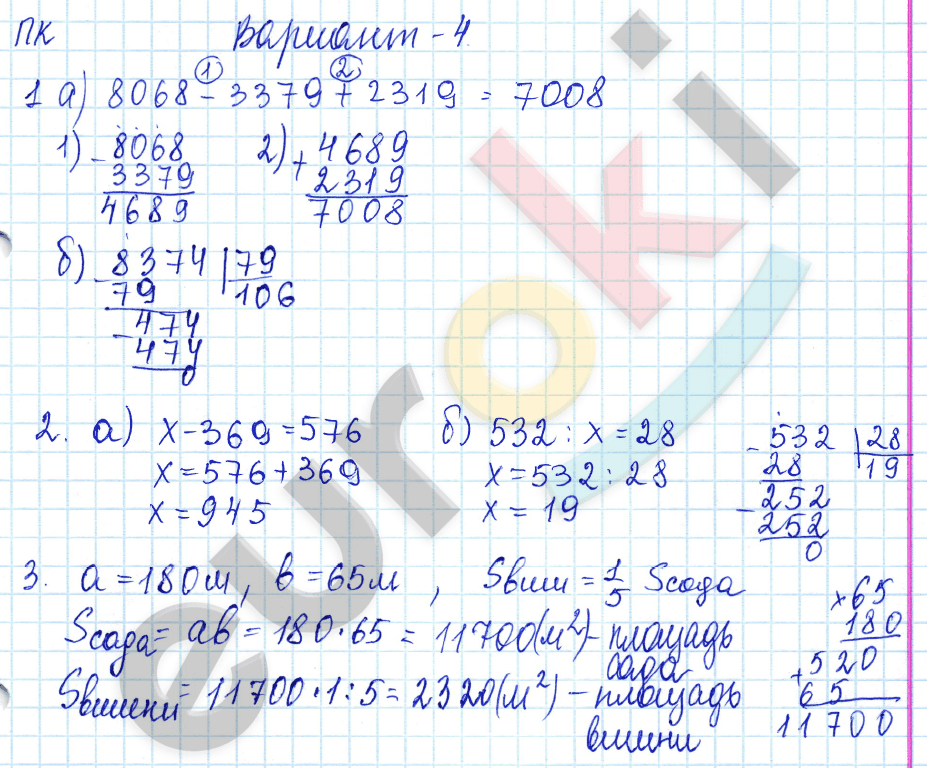 ПК Вариант - 4
1 а) 8068 - 3379 + 2319 = 7008
① ②
1) - 8068
3379
4689
2) + 4689
2319
7008
б) - 8374 | 79
79 106
- 474
474
0
2. а) x - 369 = 576
x = 576 + 369
x = 945
б) 532 : x = 28
x = 532 : 28
x = 19
- 532 | 28
28 19
- 252
252
0
3. a = 180м, b = 65м, Sвиш = 1/5 Sсада
Sсада = ab = 180·65 = 11700(м²) - площадь
сада
Sвишни = 11700·1:5 = 2320(м²) - площадь
вишни
× 65
180
+ 520
65
11700
euroki